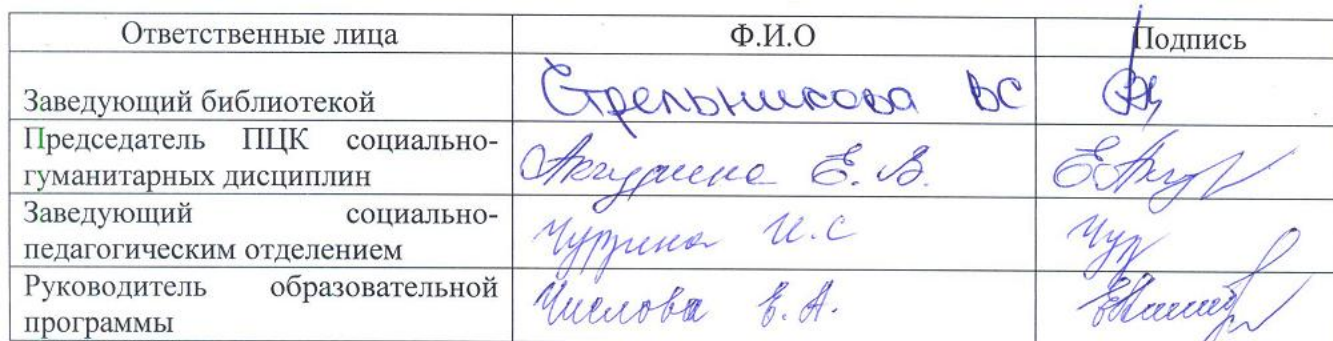 Ответственные лица Ф.И.О Подпись
Заведующий библиотекой Стрельникова ВС
Председатель ПЦК социально-
гуманитарных дисциплин Е. В.
Заведующий социально-
педагогическим отделением И.С
Руководитель образовательной
программы Числова Е. А.